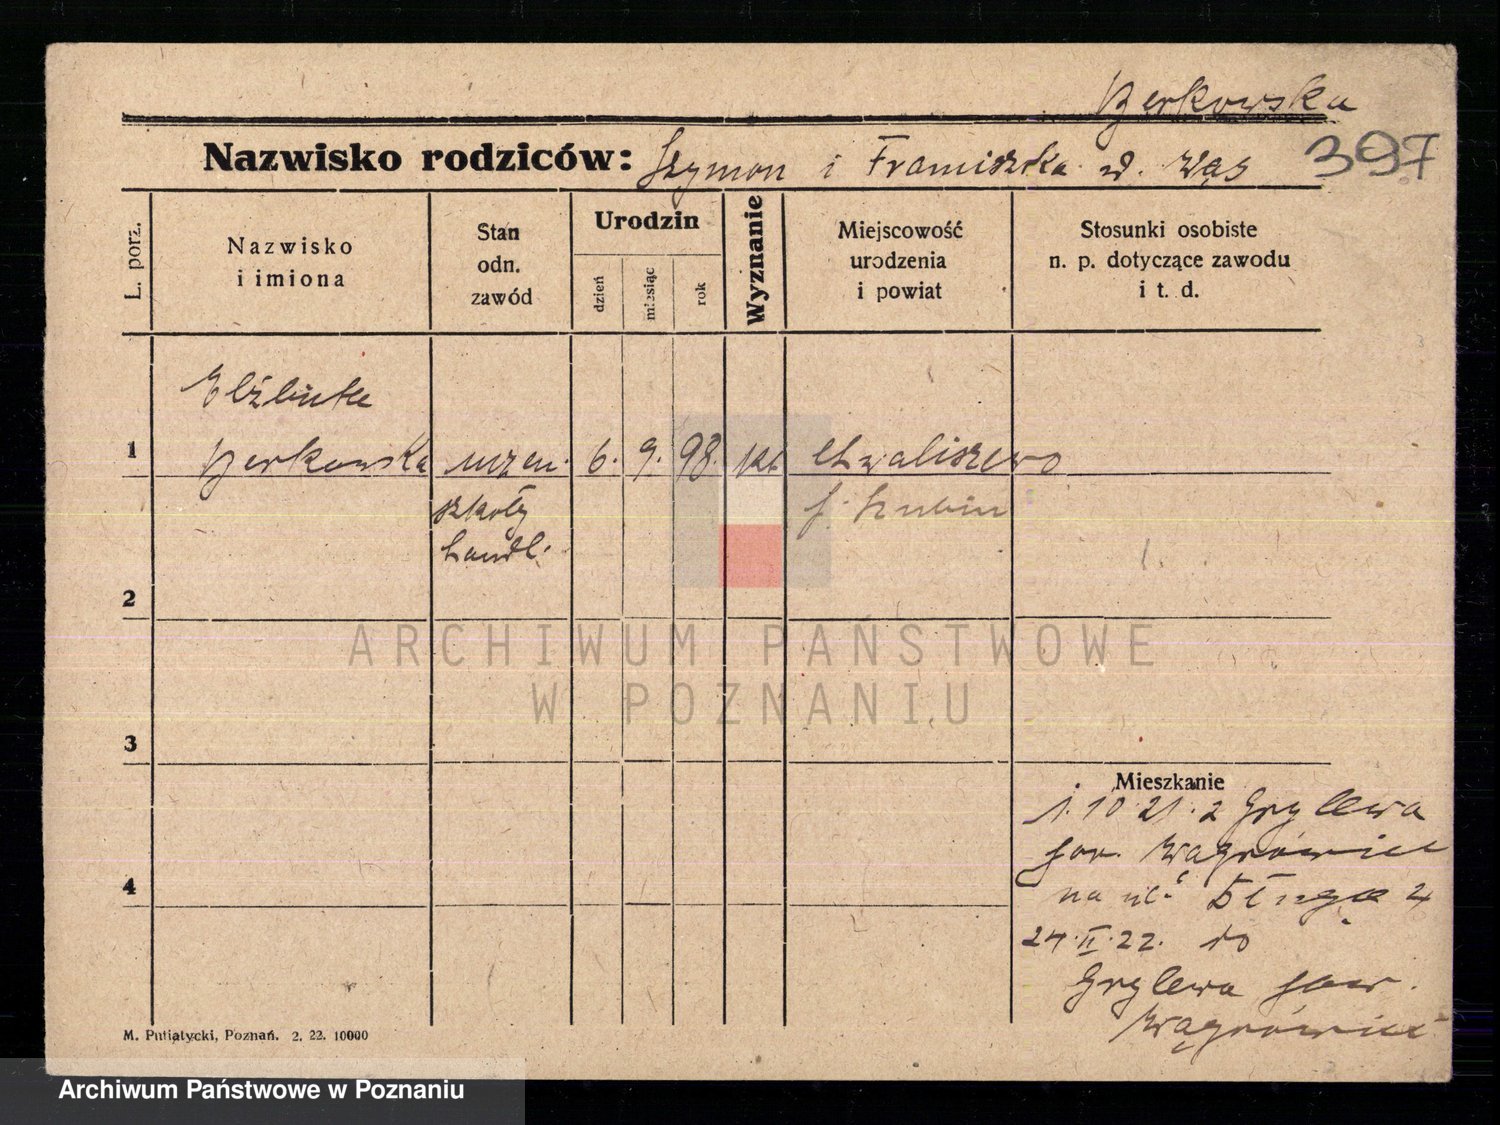 Berkowska
Nazwisko rodziców: Szymon i Franciszka d. Wąs 397
L. porz.
Nazwisko
i imiona
Stan
odn.
zawód
Urodzin
dzień
miesiąc
rok
Wyznanie
Miejscowość
urodzenia
i powiat
Stosunki osobiste
n. p. dotyczące zawodu
i t. d.
Elżbieta
1 Berkowska uczen. 6. 9. 98. kt. Chwaliszewo
szkoły p. Szubin
handl.
2
3
4
Mieszkanie
1.10.21. z Grylewa
pow. Wągrówiec
na ul. Długa 4
24.II.22. do
Grylewa pow.
Wągrówiec
M. Putiatycki, Poznań. 2. 22. 10000
ARCHIWUM PAŃSTWOWE
W POZNANIU
Archiwum Państwowe w Poznaniu